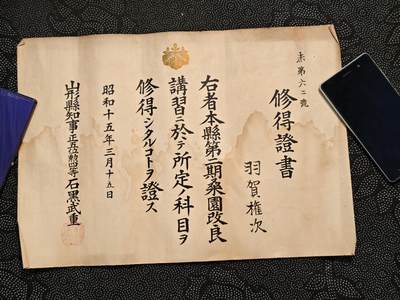 未第六二號
修得證書
羽賀権次
右者本縣第二期桑園改良
講習ニ於テ所定ノ科目ヲ
修得シタルコトヲ證ス
昭和十五年三月十五日
山形縣知事正五位勲四等石黒武重